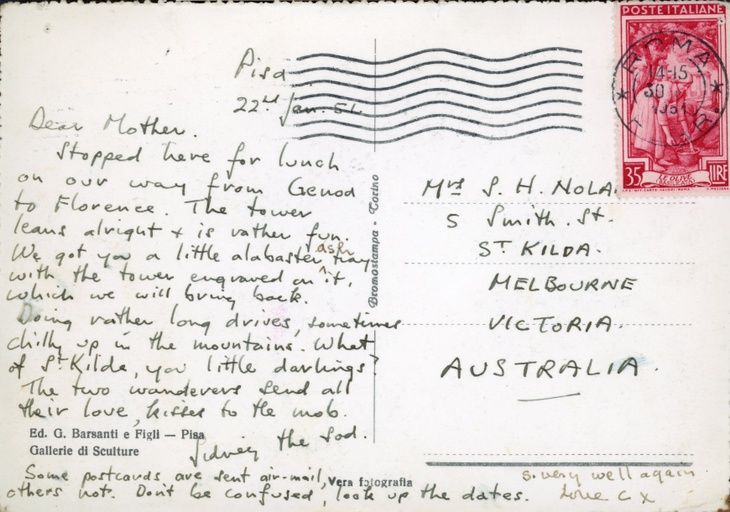 Pisa
22nd Jan. 51
Dear Mother.
Stopped here for lunch
on our way from Genoa
to Florence. The tower
leans alright + is rather fun.
We got you a little alabaster ash tray
with the tower engraved on it,
which we will bring back.
Doing rather long drives, sometimes
chilly up in the mountains. What
of St Kilda, you little darlings?
The two wanderers send all
their love, kisses to the mob.
Sidney the sod.
Ed. G. Barsanti e Figli — Pisa
Gallerie di Sculture
Some postcards are sent air-mail,
others not. Don't be confused, look up the dates.
Vera fotografia
Bromostampa - Torino
POSTE ITALIANE
ROMA
14-15
30
1951
35 LIRE
Mrs S. H. NOLA
5 Smith. St.
ST KILDA.
MELBOURNE
VICTORIA.
AUSTRALIA.
S. very well again
Love C x